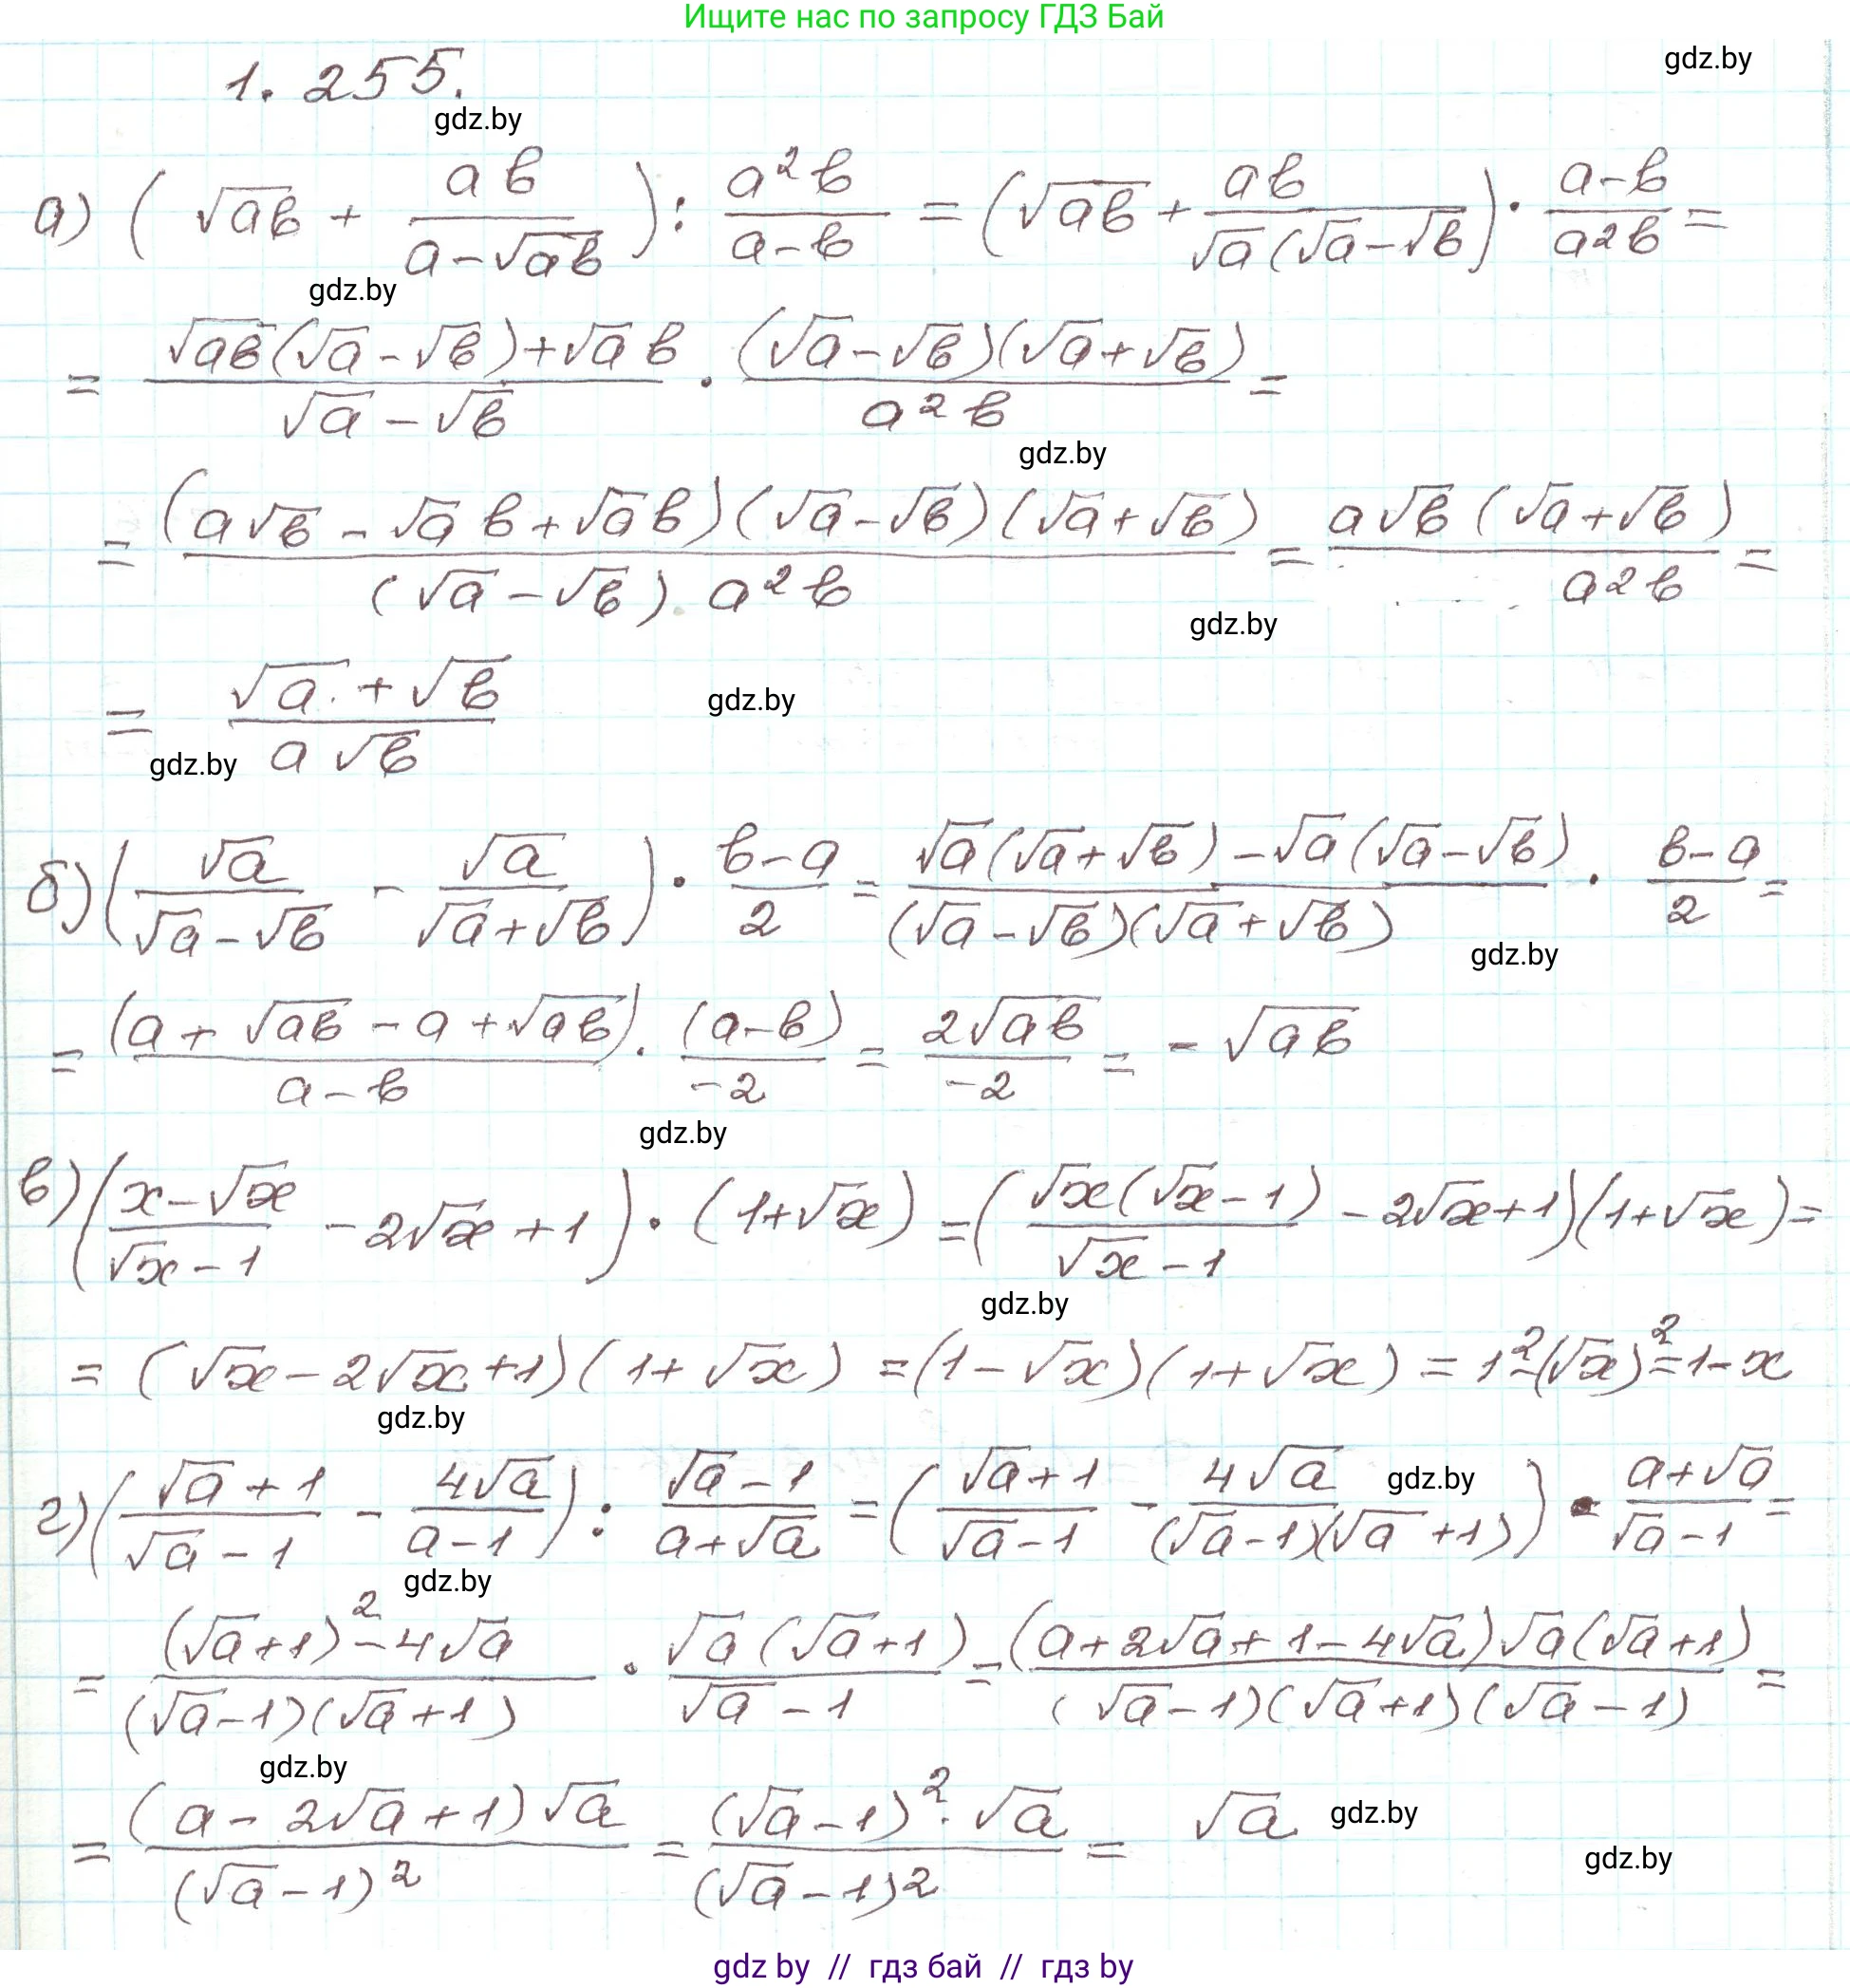 Ищите нас по запросу ГДЗ Бай
gdz.by
1. 255.
gdz.by
а) (√(aв) + aв/(a-√(aв))) : a²в/(a-в) = (√(aв) + aв/(√a(√a-√в))) · (a-в)/(a²в) =
gdz.by
= (√(aв)(√a-√в)+√a в)/(√a-√в) · ((√a-√в)(√a+√в))/(a²в) =
gdz.by
= ((a√в - √a в + √a в)(√a-√в)(√a+√в))/((√a-√в)·a²в) = (a√в(√a+√в))/(a²в) =
gdz.by
= (√a+√в)/(a√в)
gdz.by
gdz.by
б) (√a/(√a-√в) - √a/(√a+√в)) · (в-a)/2 = (√a(√a+√в)-√a(√a-√в))/((√a-√в)(√a+√в)) · (в-a)/2 =
gdz.by
= (a+√(aв)-a+√(aв))/(a-в) · (a-в)/(-2) = 2√(aв)/(-2) = -√(aв)
gdz.by
в) ((x-√x)/(√x-1) - 2√x+1) · (1+√x) = (√x(√x-1)/(√x-1) - 2√x+1)(1+√x) =
gdz.by
= (√x-2√x+1)(1+√x) = (1-√x)(1+√x) = 1²-(√x)²=1-x
gdz.by
г) ((√a+1)/(√a-1) - 4√a/(a-1)) : (√a-1)/(a+√a) = ((√a+1)/(√a-1) - 4√a/((√a-1)(√a+1))) · (a+√a)/(√a-1) =
gdz.by
gdz.by
= ((√a+1)²-4√a)/((√a-1)(√a+1)) · √a(√a+1)/(√a-1) = ((a+2√a+1-4√a)√a(√a+1))/((√a-1)(√a+1)(√a-1)) =
gdz.by
= ((a-2√a+1)√a)/(√a-1)² = ((√a-1)²·√a)/(√a-1)² = √a
gdz.by
gdz.by
gdz by // гдз бай // гдз by